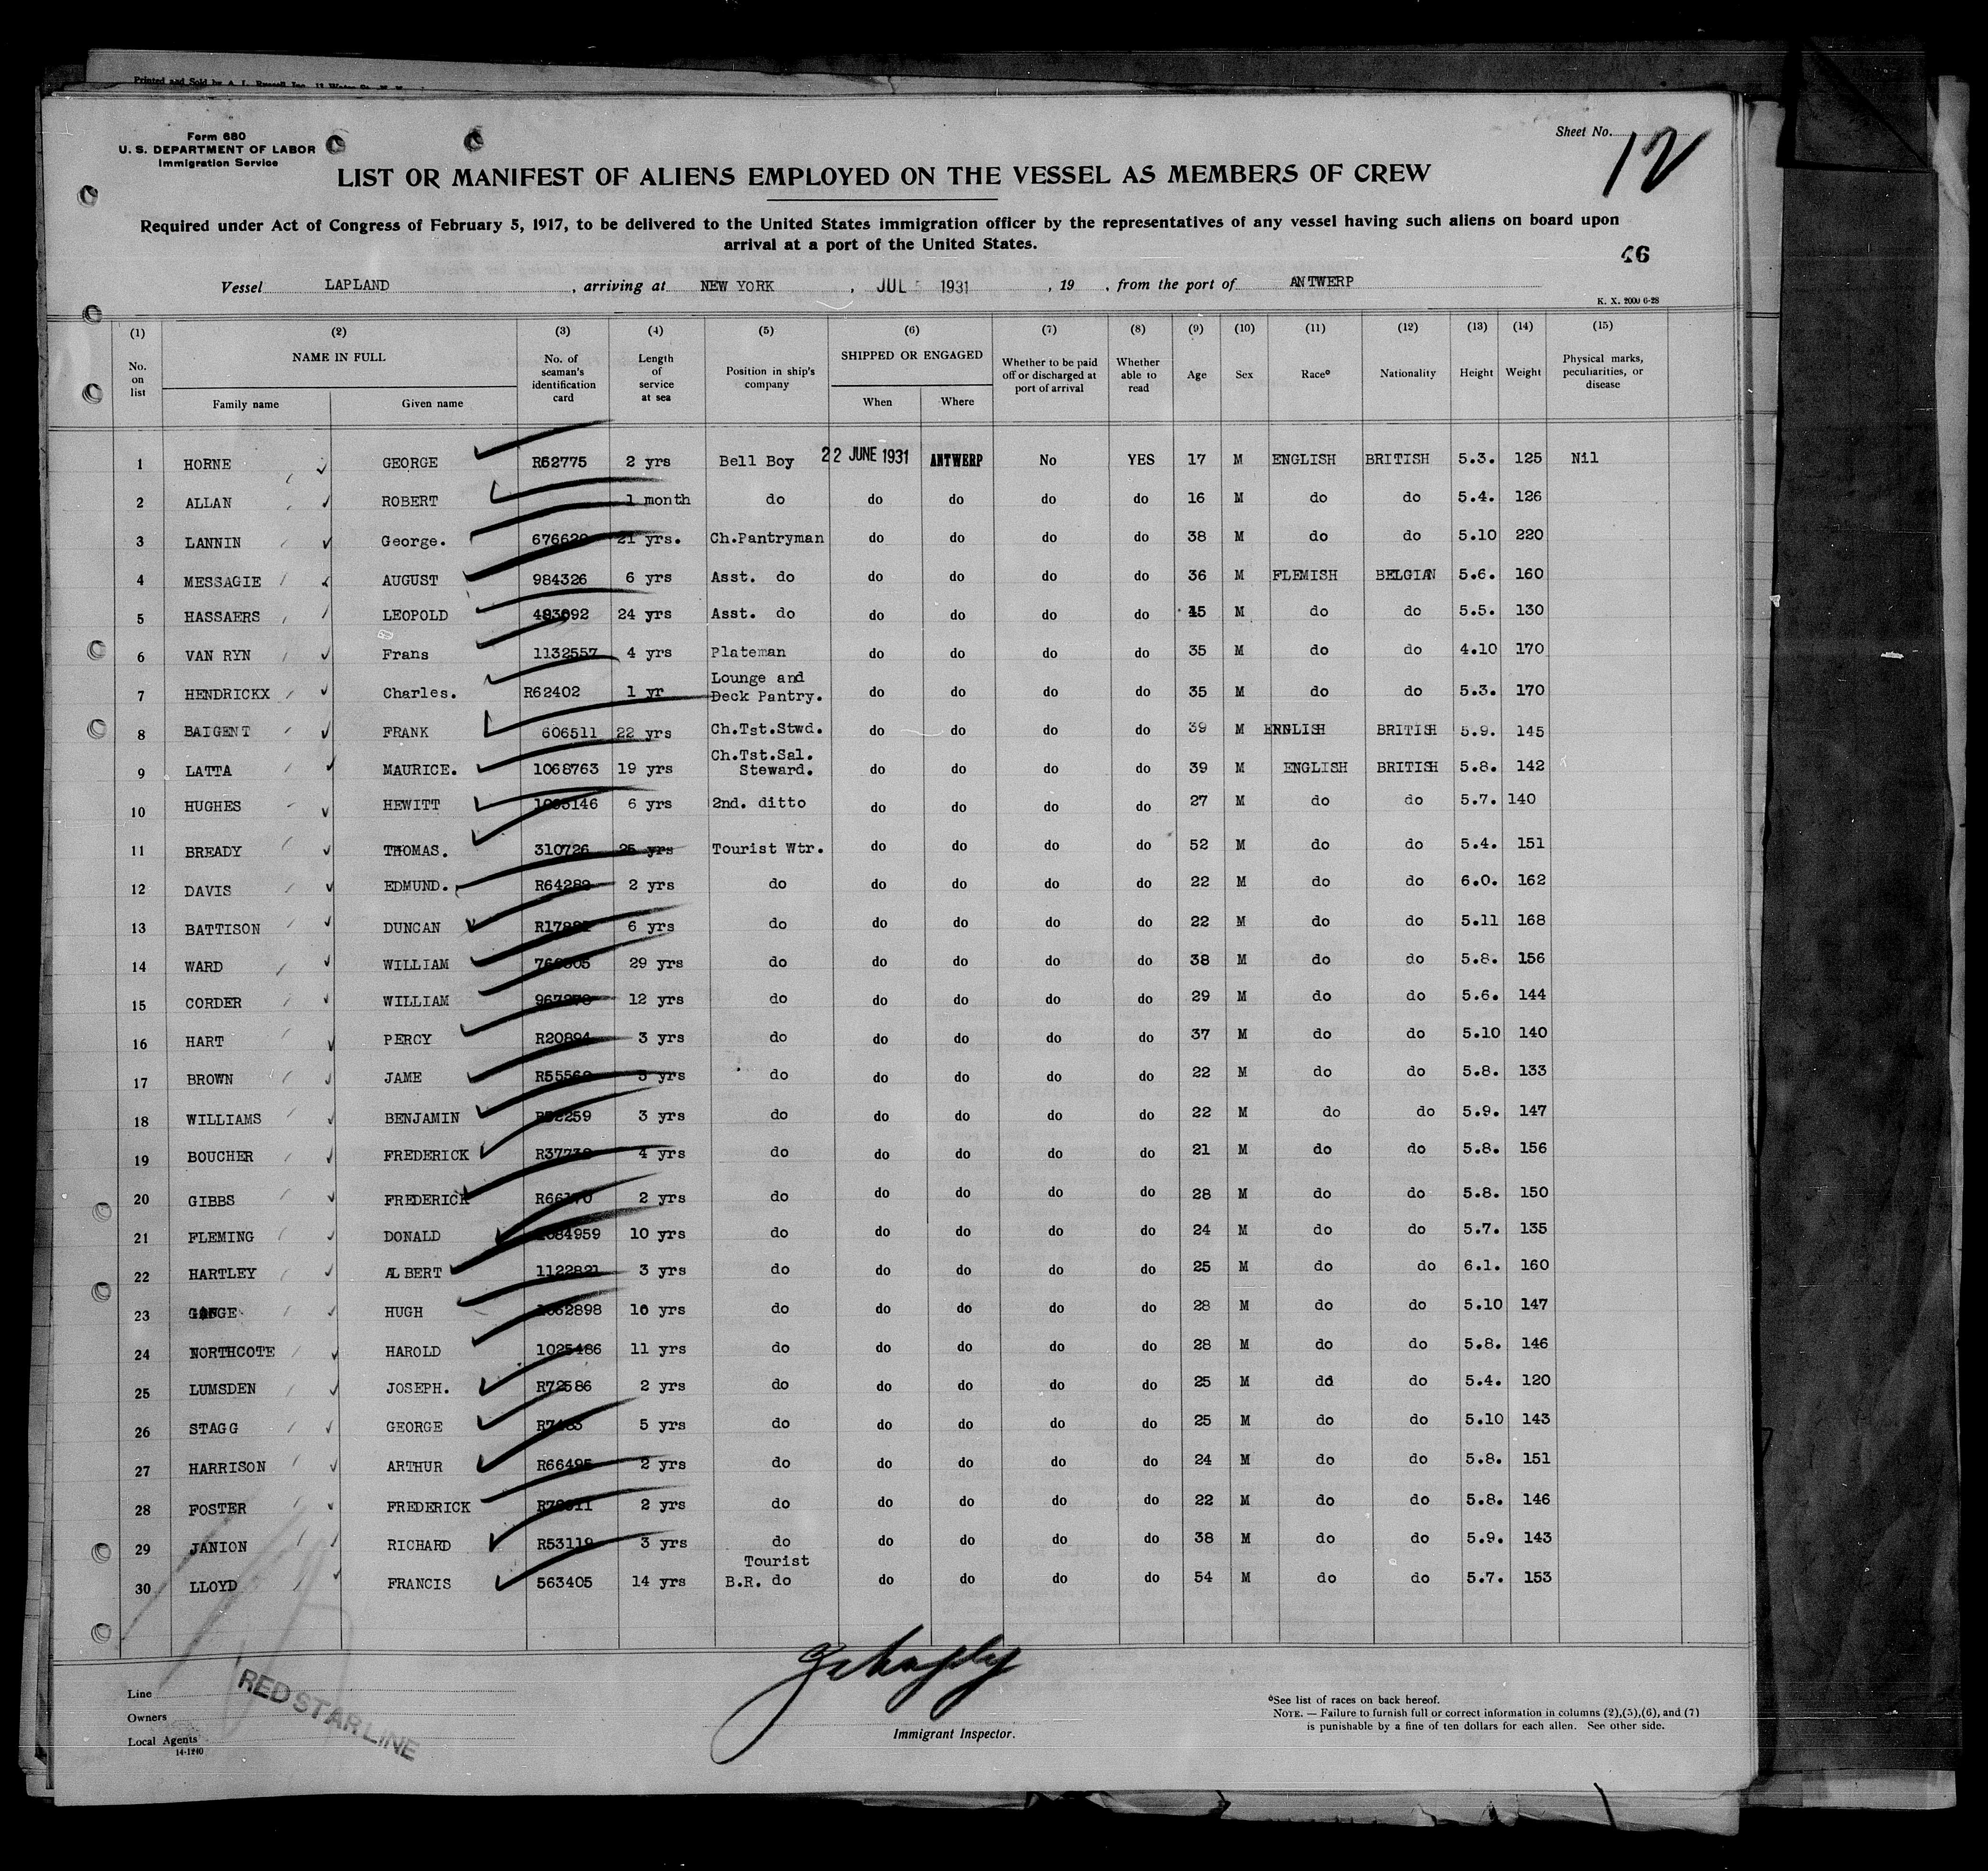 Printed and Sold by A. L. Russell Inc.
Form 680
U. S. DEPARTMENT OF LABOR
Immigration Service
Sheet No. 12
LIST OR MANIFEST OF ALIENS EMPLOYED ON THE VESSEL AS MEMBERS OF CREW
Required under Act of Congress of February 5, 1917, to be delivered to the United States immigration officer by the representatives of any vessel having such aliens on board upon
arrival at a port of the United States.
46
Vessel LAPLAND, arriving at NEW YORK, JUL 5 1931, 19 , from the port of ANTWERP
K. X. 2000 6-28
(1) (2) (3) (4) (5) (6) (7) (8) (9) (10) (11) (12) (13) (14) (15)
No. on list NAME IN FULL Family name Given name No. of seaman's identification card Length of service at sea Position in ship's company SHIPPED OR ENGAGED When Where Whether to be paid off or discharged at port of arrival Whether able to read Age Sex Race* Nationality Height Weight Physical marks, peculiarities, or disease
1 HORNE GEORGE R62775 2 yrs Bell Boy 22 JUNE 1931 ANTWERP No YES 17 M ENGLISH BRITISH 5.3. 125 Nil
2 ALLAN ROBERT 1 month do do do do do 16 M do do 5.4. 126
3 LANNIN George. 21 yrs. Ch.Pantryman do do do do 38 M do do 5.10 220
4 MESSAGIE AUGUST 984326 6 yrs Asst. do do do do do 36 M FLEMISH BELGIAN 5.6. 160
5 HASSAERS LEOPOLD 483092 24 yrs Asst. do do do do do 45 M do do 5.5. 130
6 VAN RYN Frans 1132557 4 yrs Plateman do do do do 35 M do do 4.10 170
7 HENDRICKX Charles. R62402 1 yr Lounge and Deck Pantry. do do do do 35 M do do 5.3. 170
8 BAIGENT FRANK 606511 22 yrs Ch.Tst.Stwd. do do do do 39 M ENNLISH BRITISH 5.9. 145
9 LATTA MAURICE. 1068763 19 yrs Ch.Tst.Sal. Steward. do do do do 39 M ENGLISH BRITISH 5.8. 142
10 HUGHES HEWITT 6 yrs 2nd. ditto do do do do 27 M do do 5.7. 140
11 BREADY THOMAS. 310726 25 yrs Tourist Wtr. do do do do 52 M do do 5.4. 151
12 DAVIS EDMUND. 2 yrs do do do do do 22 M do do 6.0. 162
13 BATTISON DUNCAN 6 yrs do do do do do 22 M do do 5.11 168
14 WARD WILLIAM 29 yrs do do do do do 38 M do do 5.8. 156
15 CORDER WILLIAM 12 yrs do do do do do 29 M do do 5.6. 144
16 HART PERCY R20894 3 yrs do do do do do 37 M do do 5.10 140
17 BROWN JAME 3 yrs do do do do do 22 M do do 5.8. 133
18 WILLIAMS BENJAMIN 3 yrs do do do do do 22 M do do 5.9. 147
19 BOUCHER FREDERICK 4 yrs do do do do do 21 M do do 5.8. 156
20 GIBBS FREDERICK 2 yrs do do do do do 28 M do do 5.8. 150
21 FLEMING DONALD 1084959 10 yrs do do do do do 24 M do do 5.7. 135
22 HARTLEY ALBERT 1122821 3 yrs do do do do do 25 M do do 6.1. 160
23 HUGH 10 yrs do do do do do 28 M do do 5.10 147
24 NORTHCOTE HAROLD 1025486 11 yrs do do do do do 28 M do do 5.8. 146
25 LUMSDEN JOSEPH. R72586 2 yrs do do do do do 25 M do do 5.4. 120
26 STAGG GEORGE 5 yrs do do do do do 25 M do do 5.10 143
27 HARRISON ARTHUR R66495 2 yrs do do do do do 24 M do do 5.8. 151
28 FOSTER FREDERICK 2 yrs do do do do do 22 M do do 5.8. 146
29 JANION RICHARD R53119 3 yrs do do do do do 38 M do do 5.9. 143
30 LLOYD FRANCIS 563405 14 yrs Tourist B.R. do do do do do 54 M do do 5.7. 153
Line
Owners
Local Agents
14-1240
RED STAR LINE
Immigrant Inspector.
*See list of races on back hereof.
NOTE. — Failure to furnish full or correct information in columns (2),(5),(6), and (7)
is punishable by a fine of ten dollars for each alien. See other side.